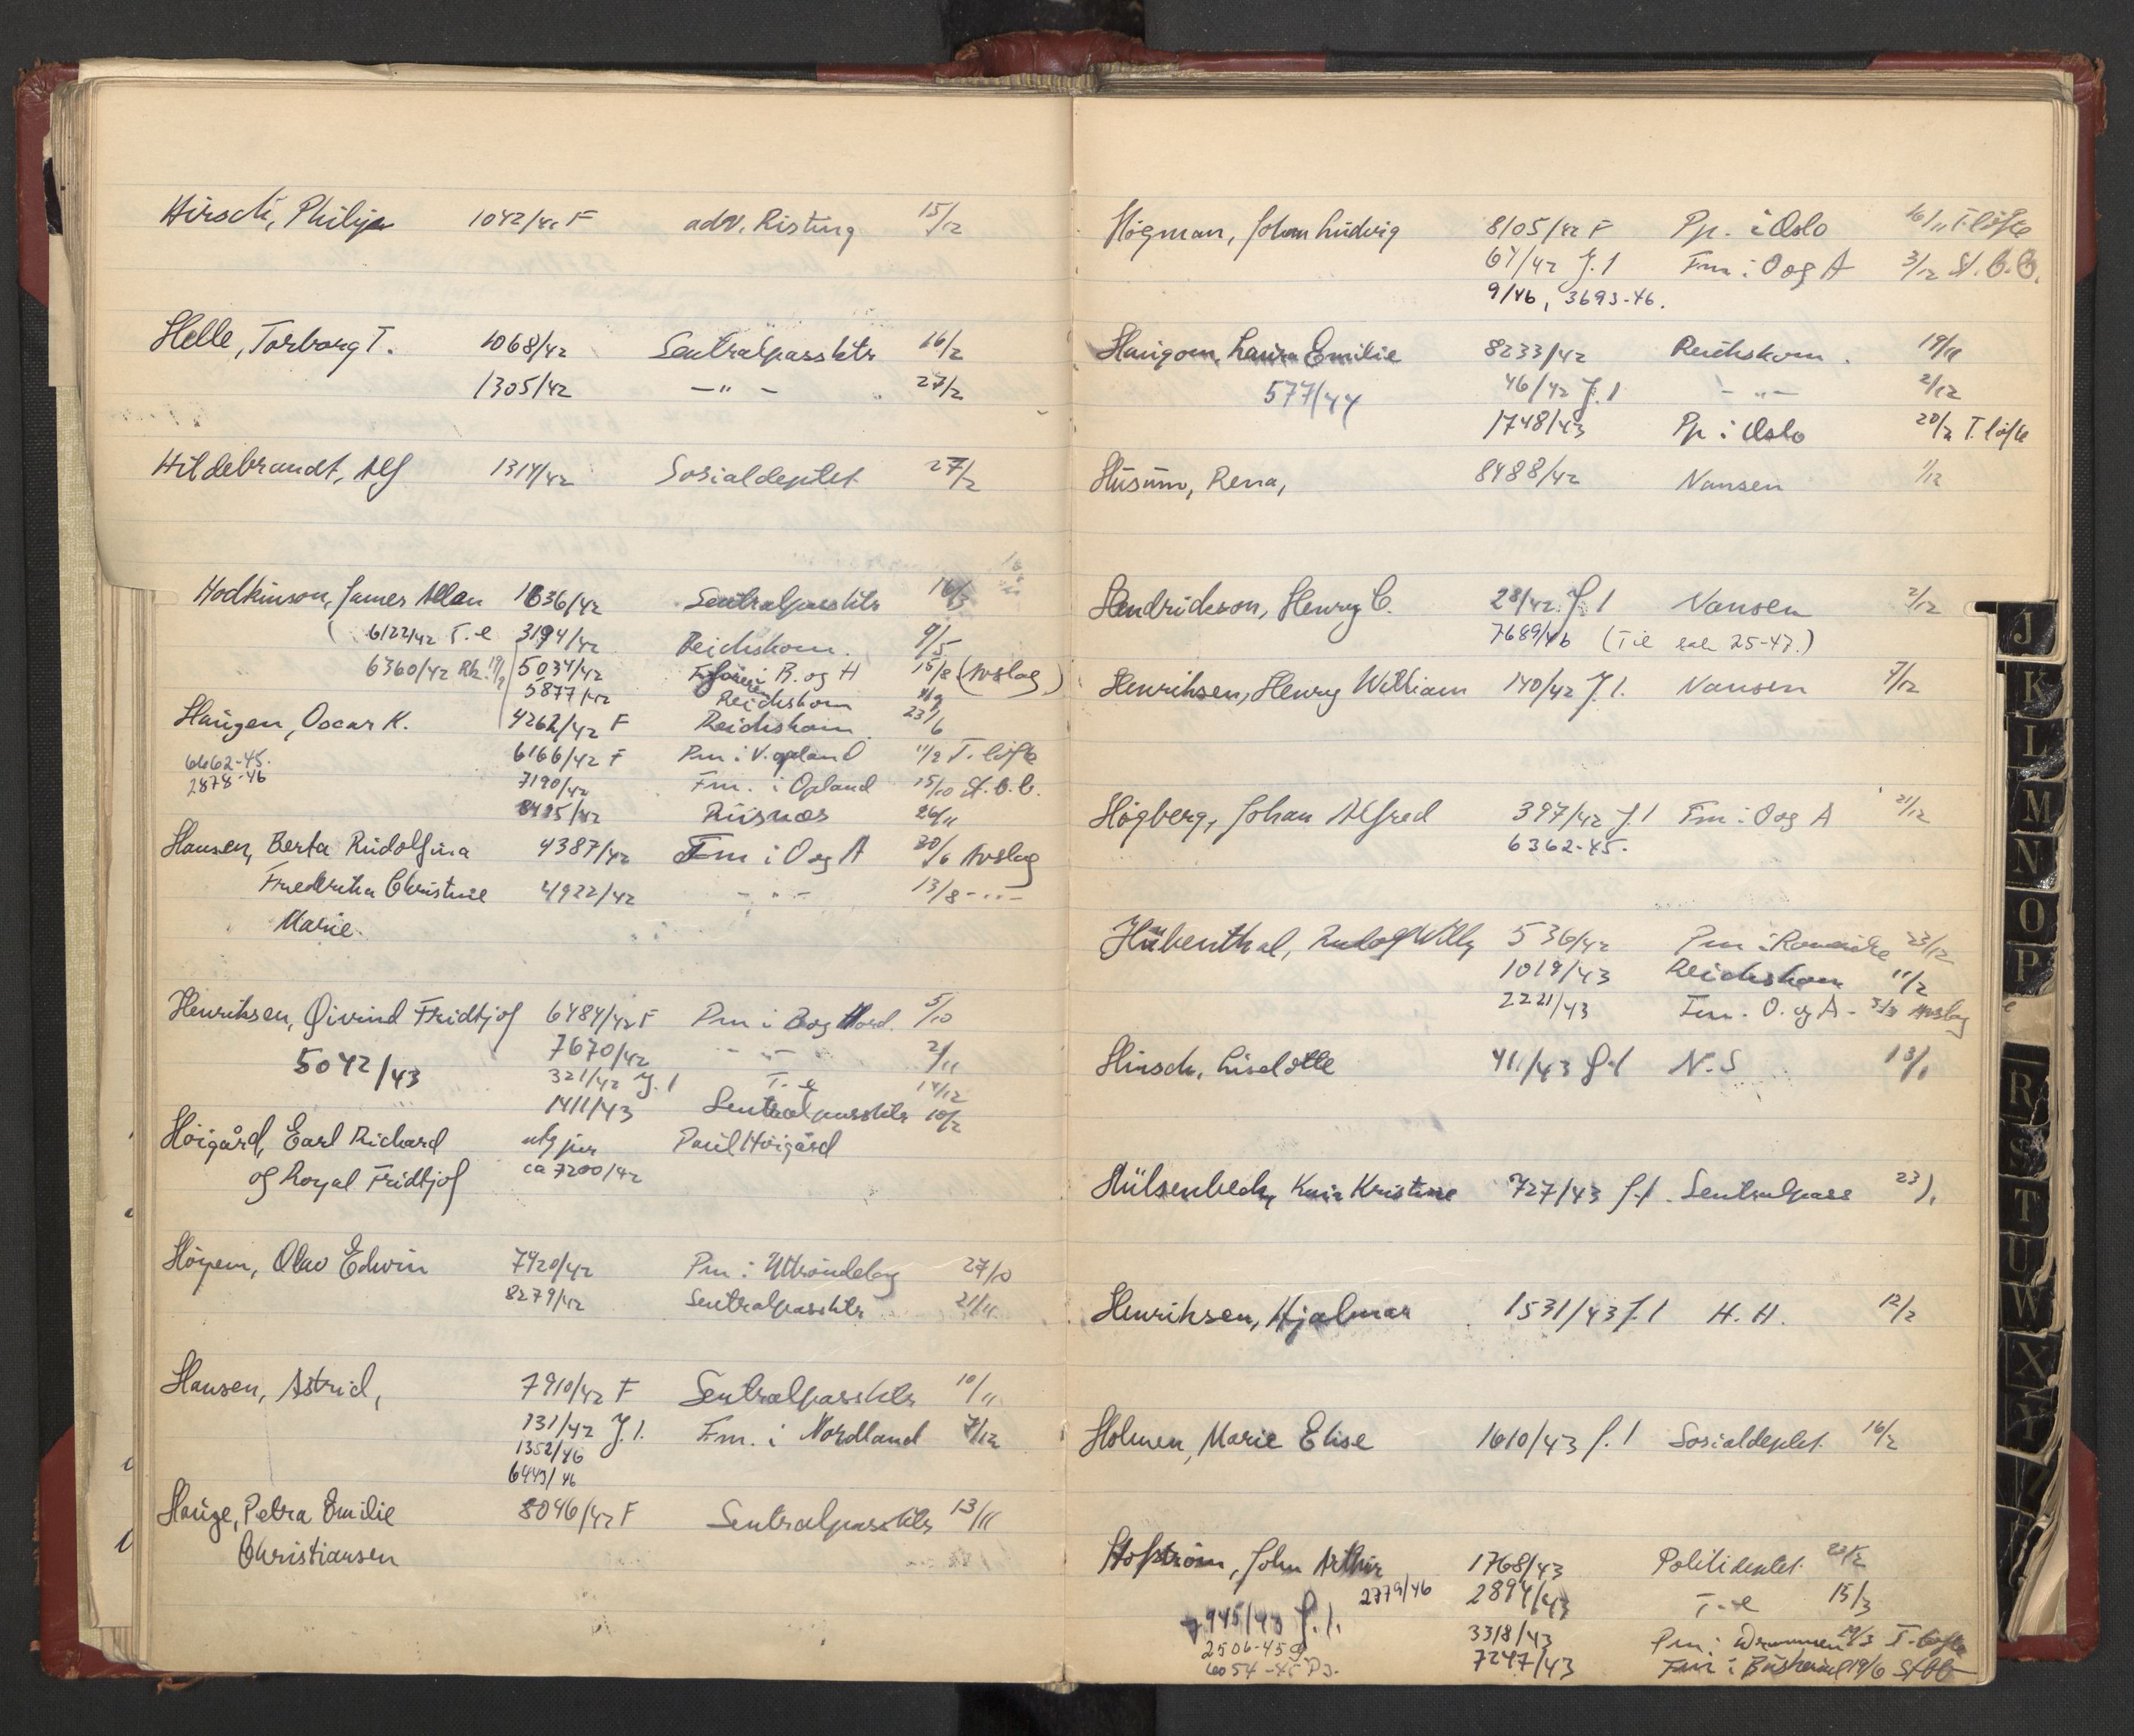 Hirsch, Philip 1042/42 F adv. Risting 15/12
Helle, Torborg T. 1068/42 Sentralpassktr 16/2
1305/42 —"— 27/2
Hildebrandt, Alf 1314/42 Sosialdeptet 27/2
Hodkinson, James Allan 1636/42 Sentralpassktr 16/3
(6122/42 T.e 3194/42 Reichskom. 9/5
6360/42 Rk. 5034/42 B. og H 15/8 (Avslag)
5877/42 Reichskom
Haugen, Oscar K. 4262/42 F Reichskom. 23/6
6662-45. 6166/42 F Pm i V.opland 11/9 T. løfte
2878-46 7190/42 Fm. i Opland 15/10 St.b.b.
8495/42 Riisnæs 26/11
Hansen, Berta Rudolfina 4387/42 Fm i O og A 20/6 Avslag
Friederika Christine 4922/42 — " — 13/8 — " —
Marie.
Henriksen, Øivind Fridtjof 6484/42 F Pm i B og Hord. 5/10
5042/43 7670/42 — " — 2/11
321/42 J.1 T.e 14/12
1411/43 Sentralpassktr 10/2
Høigård, Earl Richard utg jnr Paul Høigård
og Royal Fridtjof ca 7200/42
Høyem, Olav Edwin 7420/42 Pm i Uttrøndelag 27/10
8279/42 Sentralpassktr 21/11
Hansen, Astrid, 7910/42 F Sentralpassktr 10/11
131/42 J.1. Fm. i Nordland 7/12
1352/46
6443/46
Hauge, Petra Emilie 8046/42 F Sentralpassktr 13/11
Christiansen
Högman, Johan Ludvig 8105/42 F Pp. i Oslo 16/11 T.løfte
67/42 J.1 Fm i O og A 3/12 St.b.b.
9/46, 3693-46.
Haugom, Laura Emilie 8233/42 Reichskom. 19/11
577/44 46/42 J.1 — " — 2/12
1748/43 Pp i Oslo 20/2 T.løfte
Husum, Rena, 8488/42 Nansen 1/12
Hendrickson, Henry C. 28/42 J.1 Nansen 2/12
7689/46 (Til sak 25-47.)
Henriksen, Henry William 140/42 J.1. Nansen 7/12
Högberg, Johan Alfred 397/42 J.1 Fm i O og A 21/12
6362-45.
Hübenthal, Rudolf Willy 536/42 Pm i Romerike 23/12
1019/43 Reichskom 11/2
2221/43 Fm. O. og A - Avslag
Hinsch, Liselotte 411/43 J.1 N.S 13/1
Hülsenbech, Kristine 727/43 J.1. Sentralpass 23/1
Henriksen, Hjalmar 1531/43 J.1 H. H. 12/2
Holmen, Marie Elise 1610/43 J.1 Sosialdeptet. 16/2
Hofström, John Arthur 1768/43 Politideptet. 22/2
2779/46 2894/43 T.e 15/3
7945/43 J.1. 3318/43 Pm i Drammen T.løfte
2506-45 7247/43 Fm i Buskerud 19/6 St.bb
6054-45 PJ.
J
K
L
M
N
O
P
R
S
T
U
W
X
Y
Z